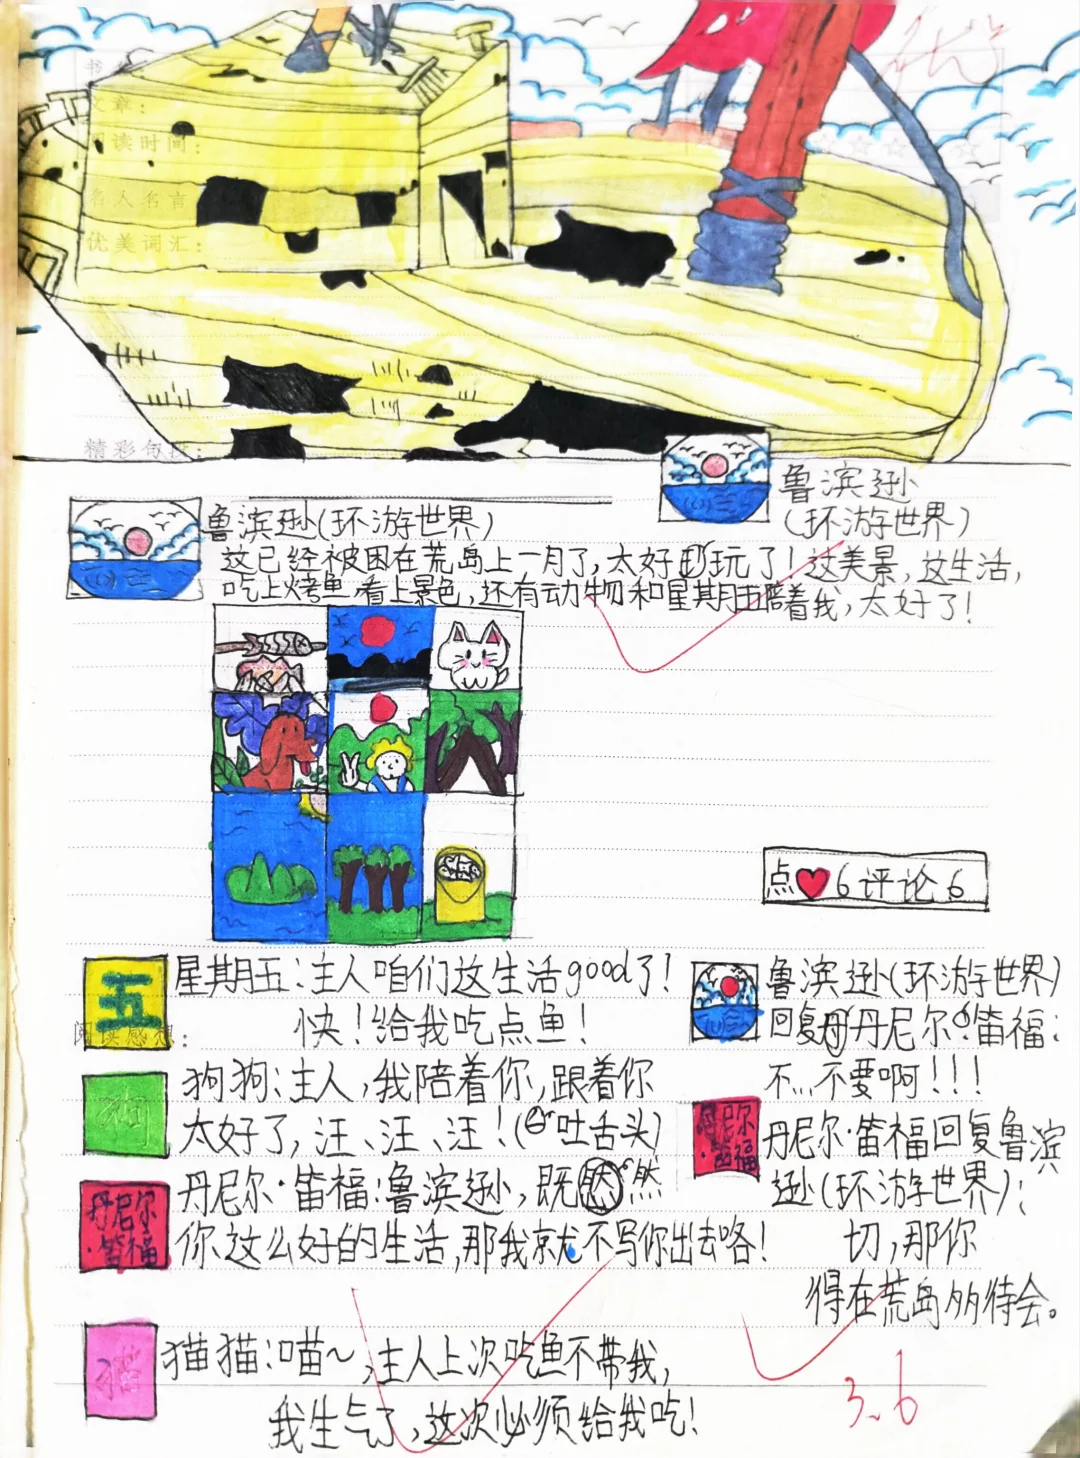 文章:
阅读时间:
名人名言
优美词汇:
精彩句段:
鲁滨逊
(环游世界)
鲁滨逊(环游世界)
这已经被困在荒岛上一月了,太好玩了!这美景,这生活,
吃上烤鱼,看上景色,还有动物和星期五陪着我,太好了!
点❤6评论6
五
星期五:主人咱们这生活good了!
快!给我吃点鱼!
阅读感想:
狗
狗狗:主人,我陪着你,跟着你
太好了,汪、汪、汪!(吐舌头)
丹尼尔
·笛福
丹尼尔·笛福:鲁滨逊,既然
你这么好的生活,那我就不写你出去咯!
猫
猫猫:喵~,主人上次吃鱼不带我,
我生气了,这次必须给我吃!
鲁滨逊(环游世界)
回复丹尼尔·笛福:
不...不要啊!!!
丹尼尔
·笛福
丹尼尔·笛福回复鲁滨
逊(环游世界):
切,那你
得在荒岛多待会。
3.6